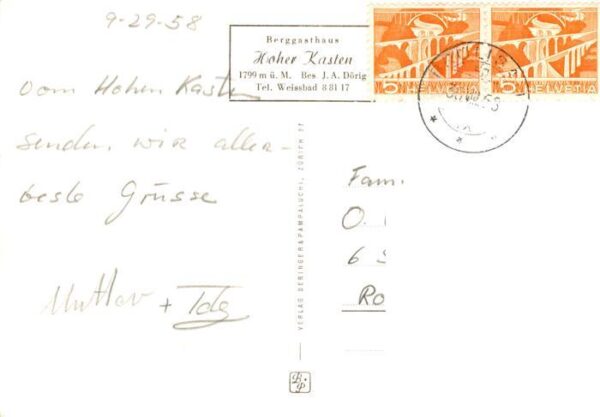 9-29-58
Berggasthaus
Hoher Kasten
1799 m ü. M. Bes J. A. Dörig
Tel. Weissbad 8 81 17
5 HELVETIA
5 HELVETIA
Vom Hohen Kasten
senden wir aller-
beste Grüsse
Mutter +
VERLAG BERINGER & PAMPALUCHI, ZÜRICH
Fam.
O.
6
Ro